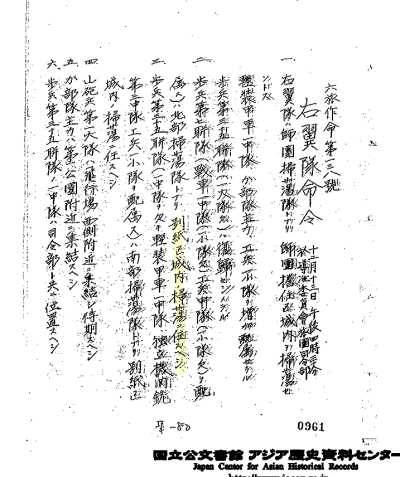 六旅作命第一三八號
右翼隊命令
十二月十三日午後四時三十分
一、右翼隊ハ師團掃蕩隊トナリ
師團擔任區城内ヲ掃蕩セ
ントス
輕装甲車中隊
工兵一小隊ヲ増加配属セラル
歩兵第三十五聯隊(一大隊欠)ハ復歸セシメラル
二、歩兵第七聯隊(戰車一中隊(小隊欠)工兵中隊(小隊欠)ヲ配
属ス)ハ北部掃蕩隊トナリ別紙區城内ノ掃蕩ニ任スヘシ
三、歩兵第三十五聯隊(一中隊欠)輕装甲車一中隊獨立機関銃
第三中隊工兵小隊ヲ配属ス)ハ南部掃蕩隊トナリ別紙區
城内ノ掃蕩ニ任スヘシ
四、山砲兵第一大隊ハ飛行場西側附近ニ集結シ待期スヘシ
五、部隊主力ハ第一公園附近ニ集結スヘシ
六、歩兵第三十五聯隊ノ一中隊ハ司令部ト共ニ位置スヘシ
0961
国立公文書館 アジア歴史資料センター
Japan Center for Asian Historical Records